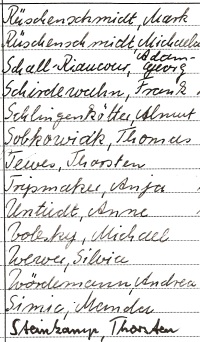 Rüschenschmidt, Mark
Rüschenschmidt, Michaela
Schall-Riaucour, Adam-Georg
Schirdewahn, Frank
Schlingenkötter, Almut
Sobkowiak, Thomas
Tewes, Thorsten
Tripmaker, Anja
Untiedt, Anne
Volesky, Michael
Wewer, Silvia
Wördemann, Andrea
Simic, Menda
Steinkamp, Thorsten